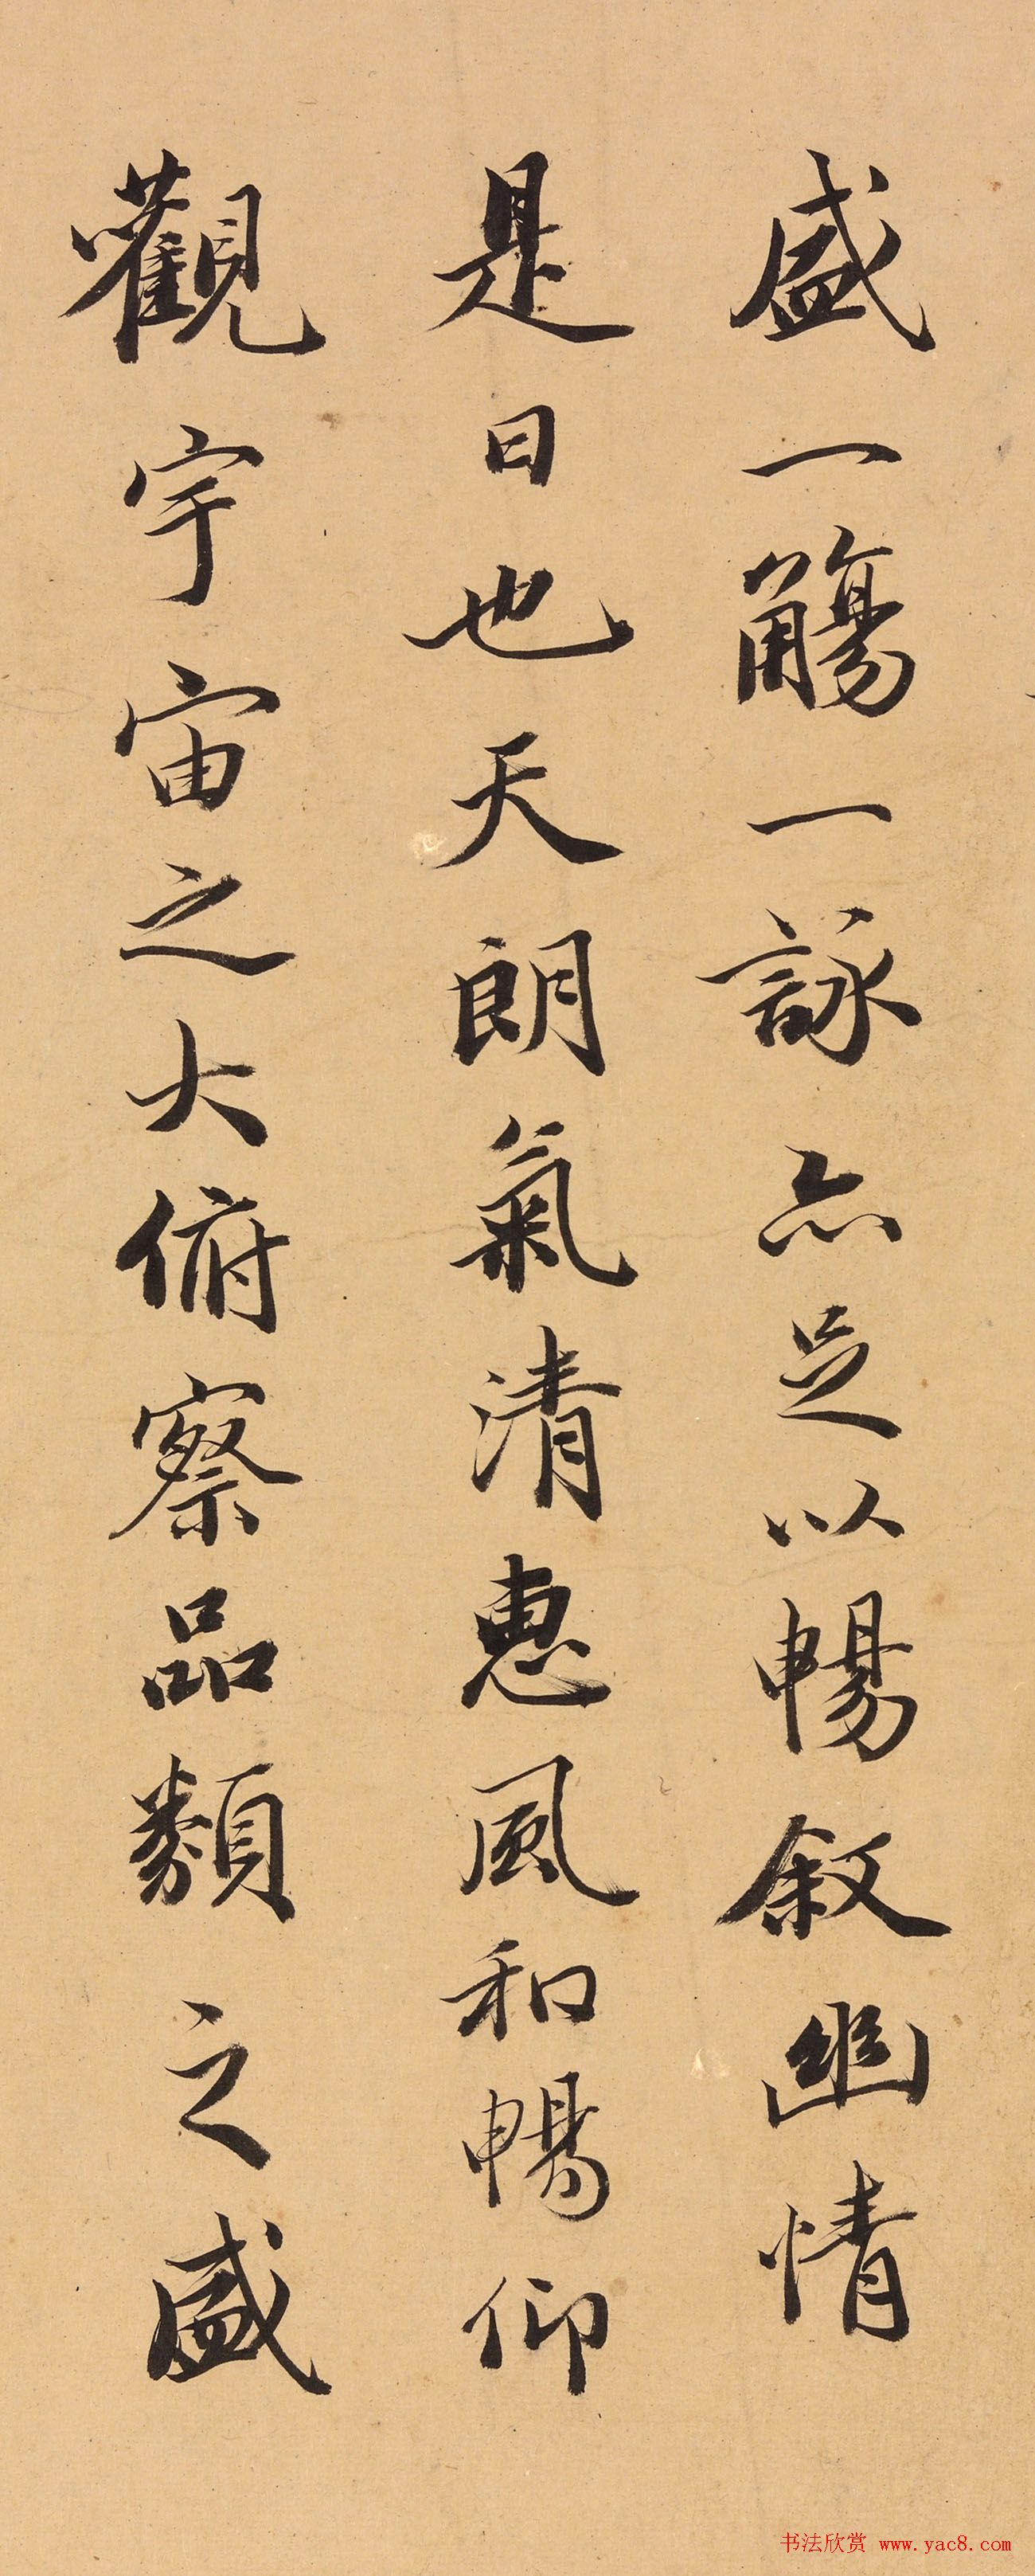 盛一觴一詠亦足以暢叙幽情
是日也天朗氣清惠風和暢仰
觀宇宙之大俯察品類之盛
书法欣赏 www.yac8.com